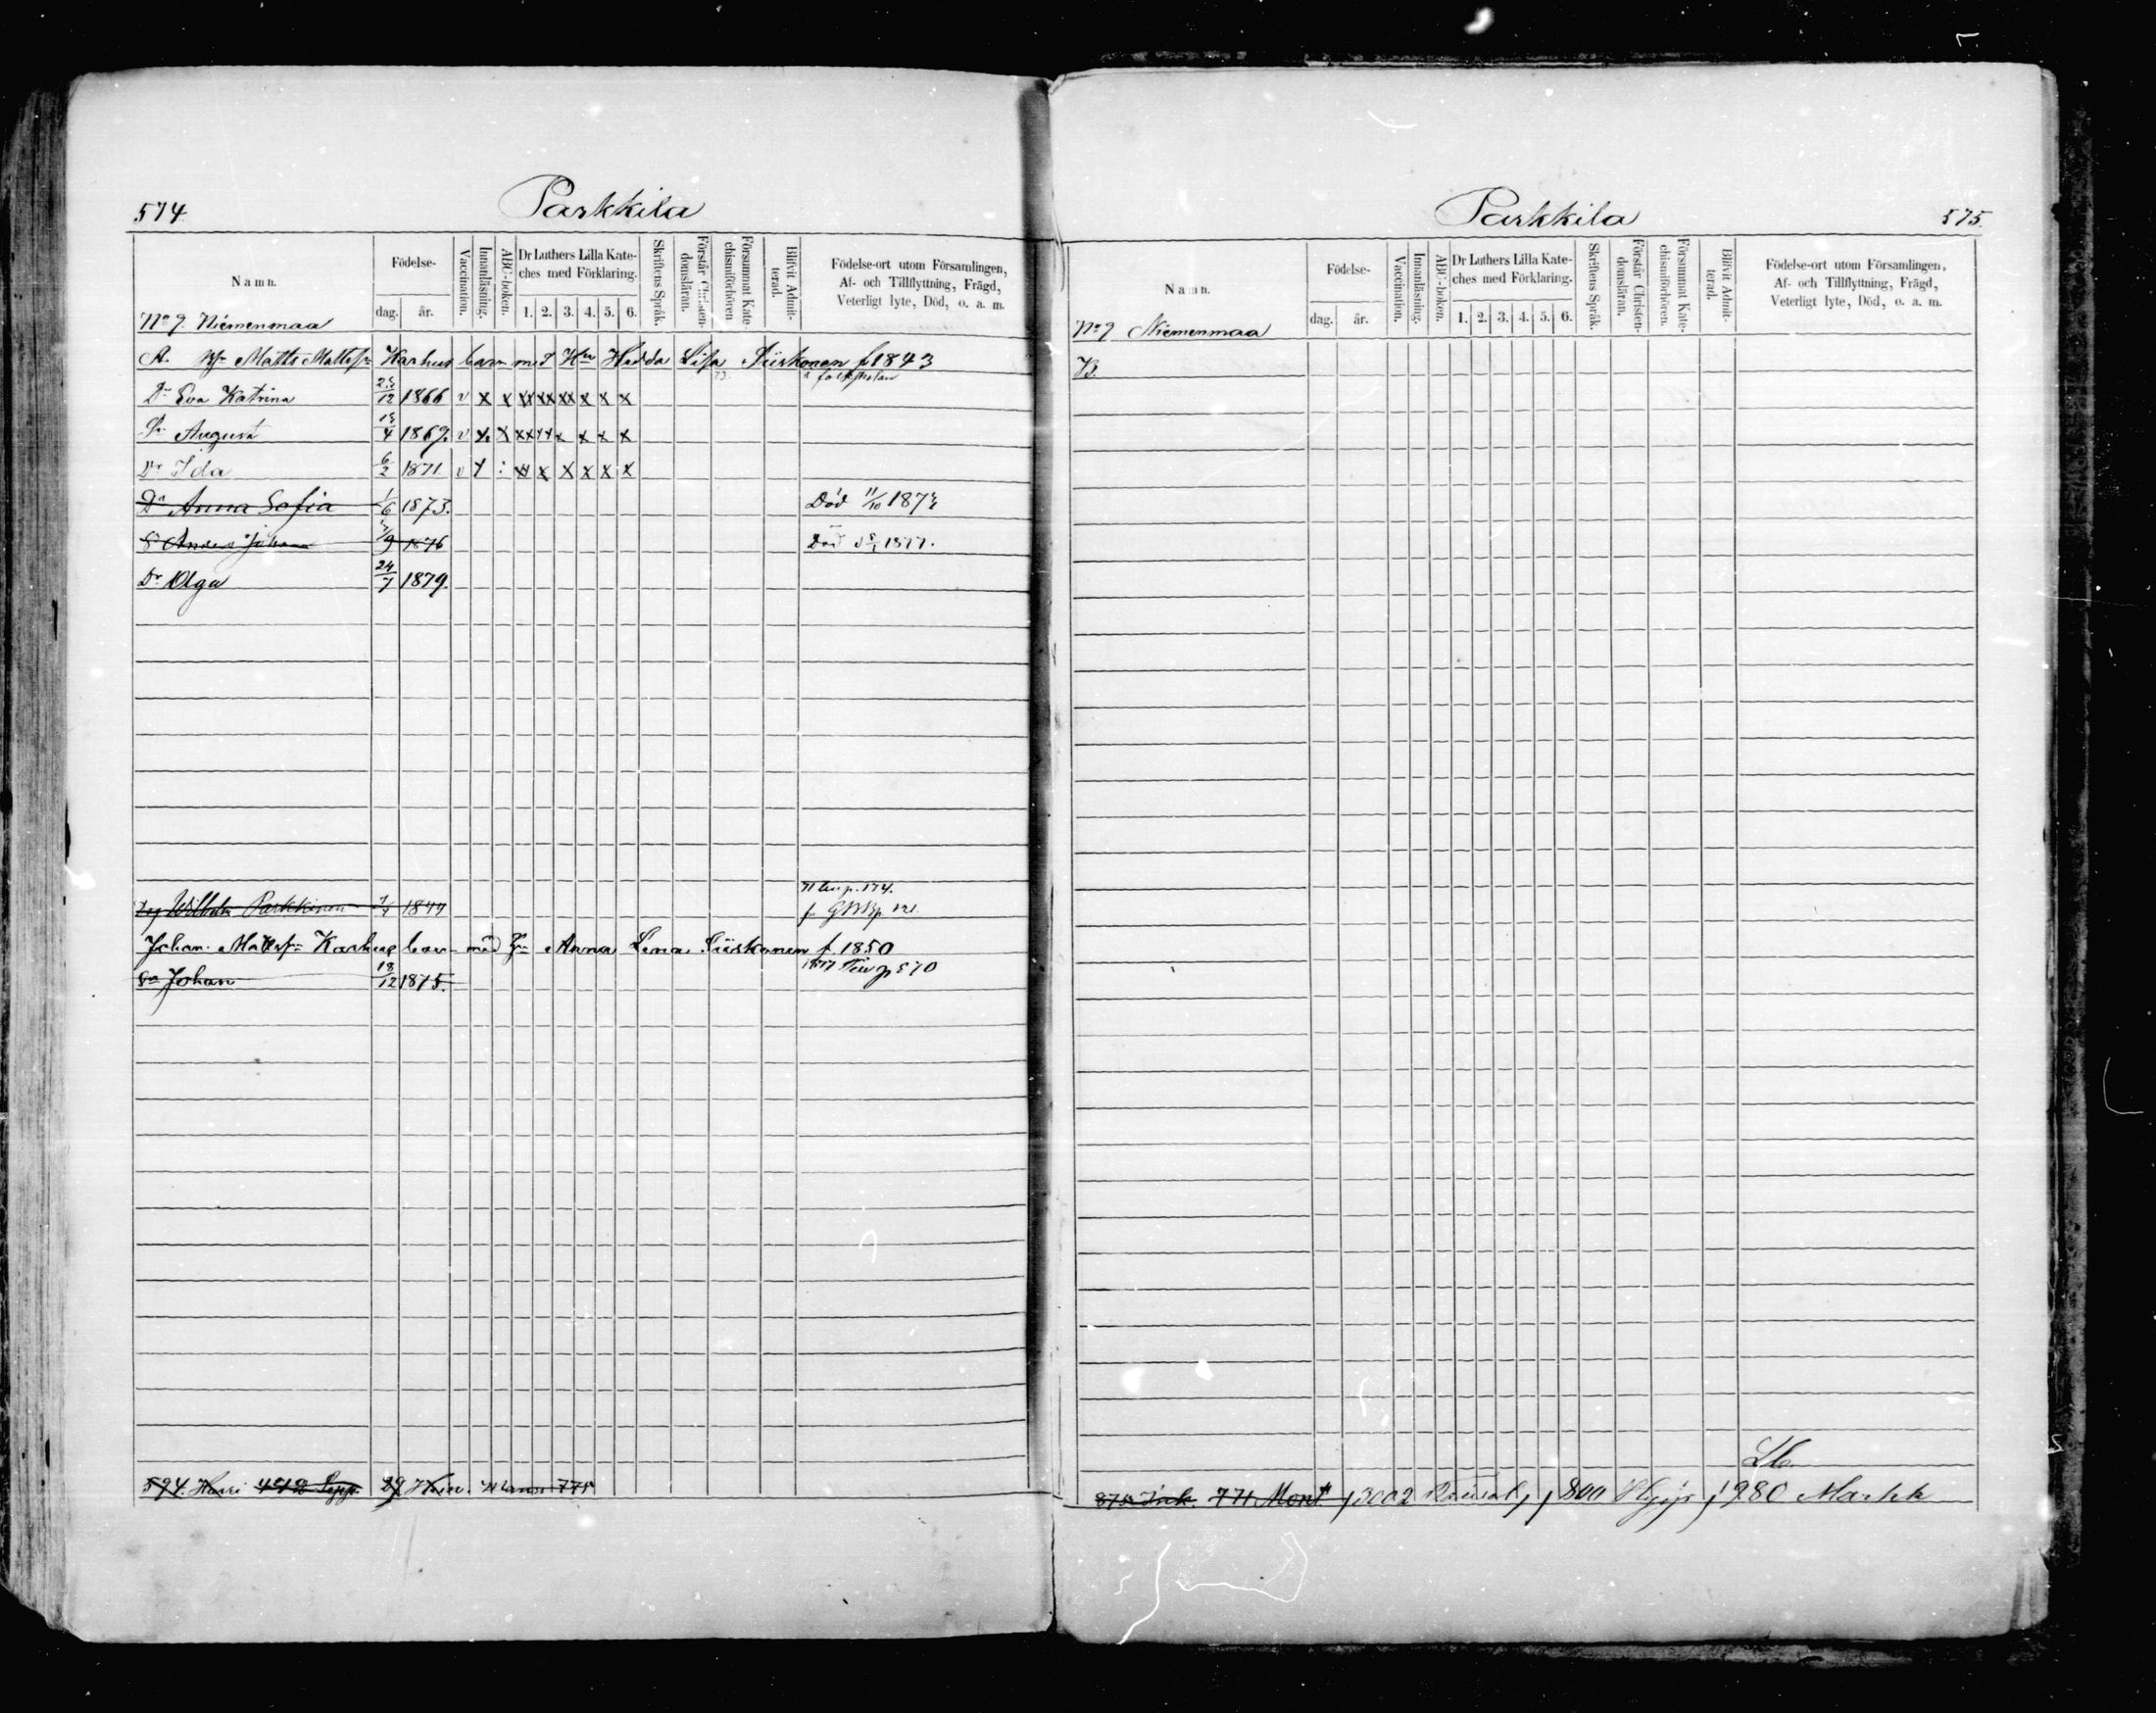 574.
Parkkila
Namn.
Födelse-
dag.
år.
Vaccination.
Innanläsning.
ABC-boken.
Dr Luthers Lilla Kate-
ches med Förklaring.
1. 2. 3. 4. 5. 6.
Skriftens Språk.
Förstår Christen-
domsläran.
Försummat Kate
chismiförhören
Blifvit Admit-
terad.
Födelse-ort utom Församlingen,
Af- och Tillflyttning, Frägd,
Veterligt lyte, Död, o. a. m.
No 9. Niemenmaa
A. Matts Mattss: Karhus barn med H Hedda Lisa Tiiskonen f 1843
Dr Eva Katrina 12 1866 v x x xx xx xx x x x
Sn August 4 1869. v x x xx xx x x x x
Dr Ida 6/2 1871 v x : xx x x x x x
Dr Anna Sofia 1/6 1873. Död 11/10 187
Sn Anders Johan 9 1876 Död 1877.
Dr Olga 24/7 1879.
Wilhelm Parkkinen 1844
Johan Mattss: Karhus barn med Anna Lena Tiiskonen f 1850
Sn Johan 12 1875. p 570
594. 29 775
Parkkila
575.
Namn.
Födelse-
dag.
år.
Vaccination.
Innanläsning.
ABC-boken.
Dr Luthers Lilla Kate-
ches med Förklaring.
1. 2. 3. 4. 5. 6.
Skriftens Språk.
Förstår Christen-
domsläran.
Försummat Kate-
chismiförhören.
Blifvit Admit-
terad.
Födelse-ort utom Församlingen,
Af- och Tillflyttning, Frägd,
Veterligt lyte, Död, o. a. m.
No 9 Niemenmaa
B.
771 Mont 3002 800 980 Markk